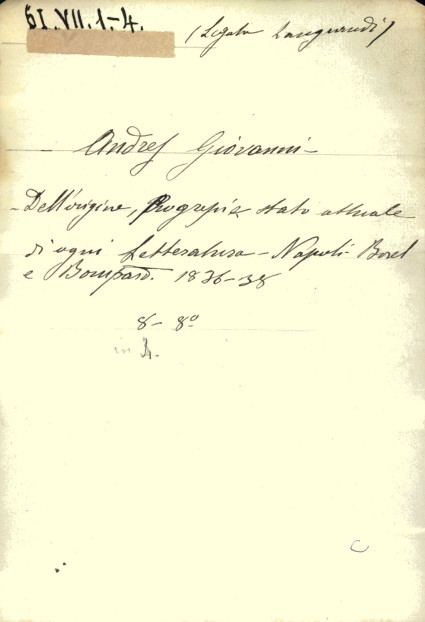 61.VII.1-4.
(Legato Sanguandi)
Andres Giovanni -
- Dell'origine, Progressi e stato attuale
di ogni Letteratura - Napoli - Borel
e Bompard. 1836-38
8 - 8º
in 4.